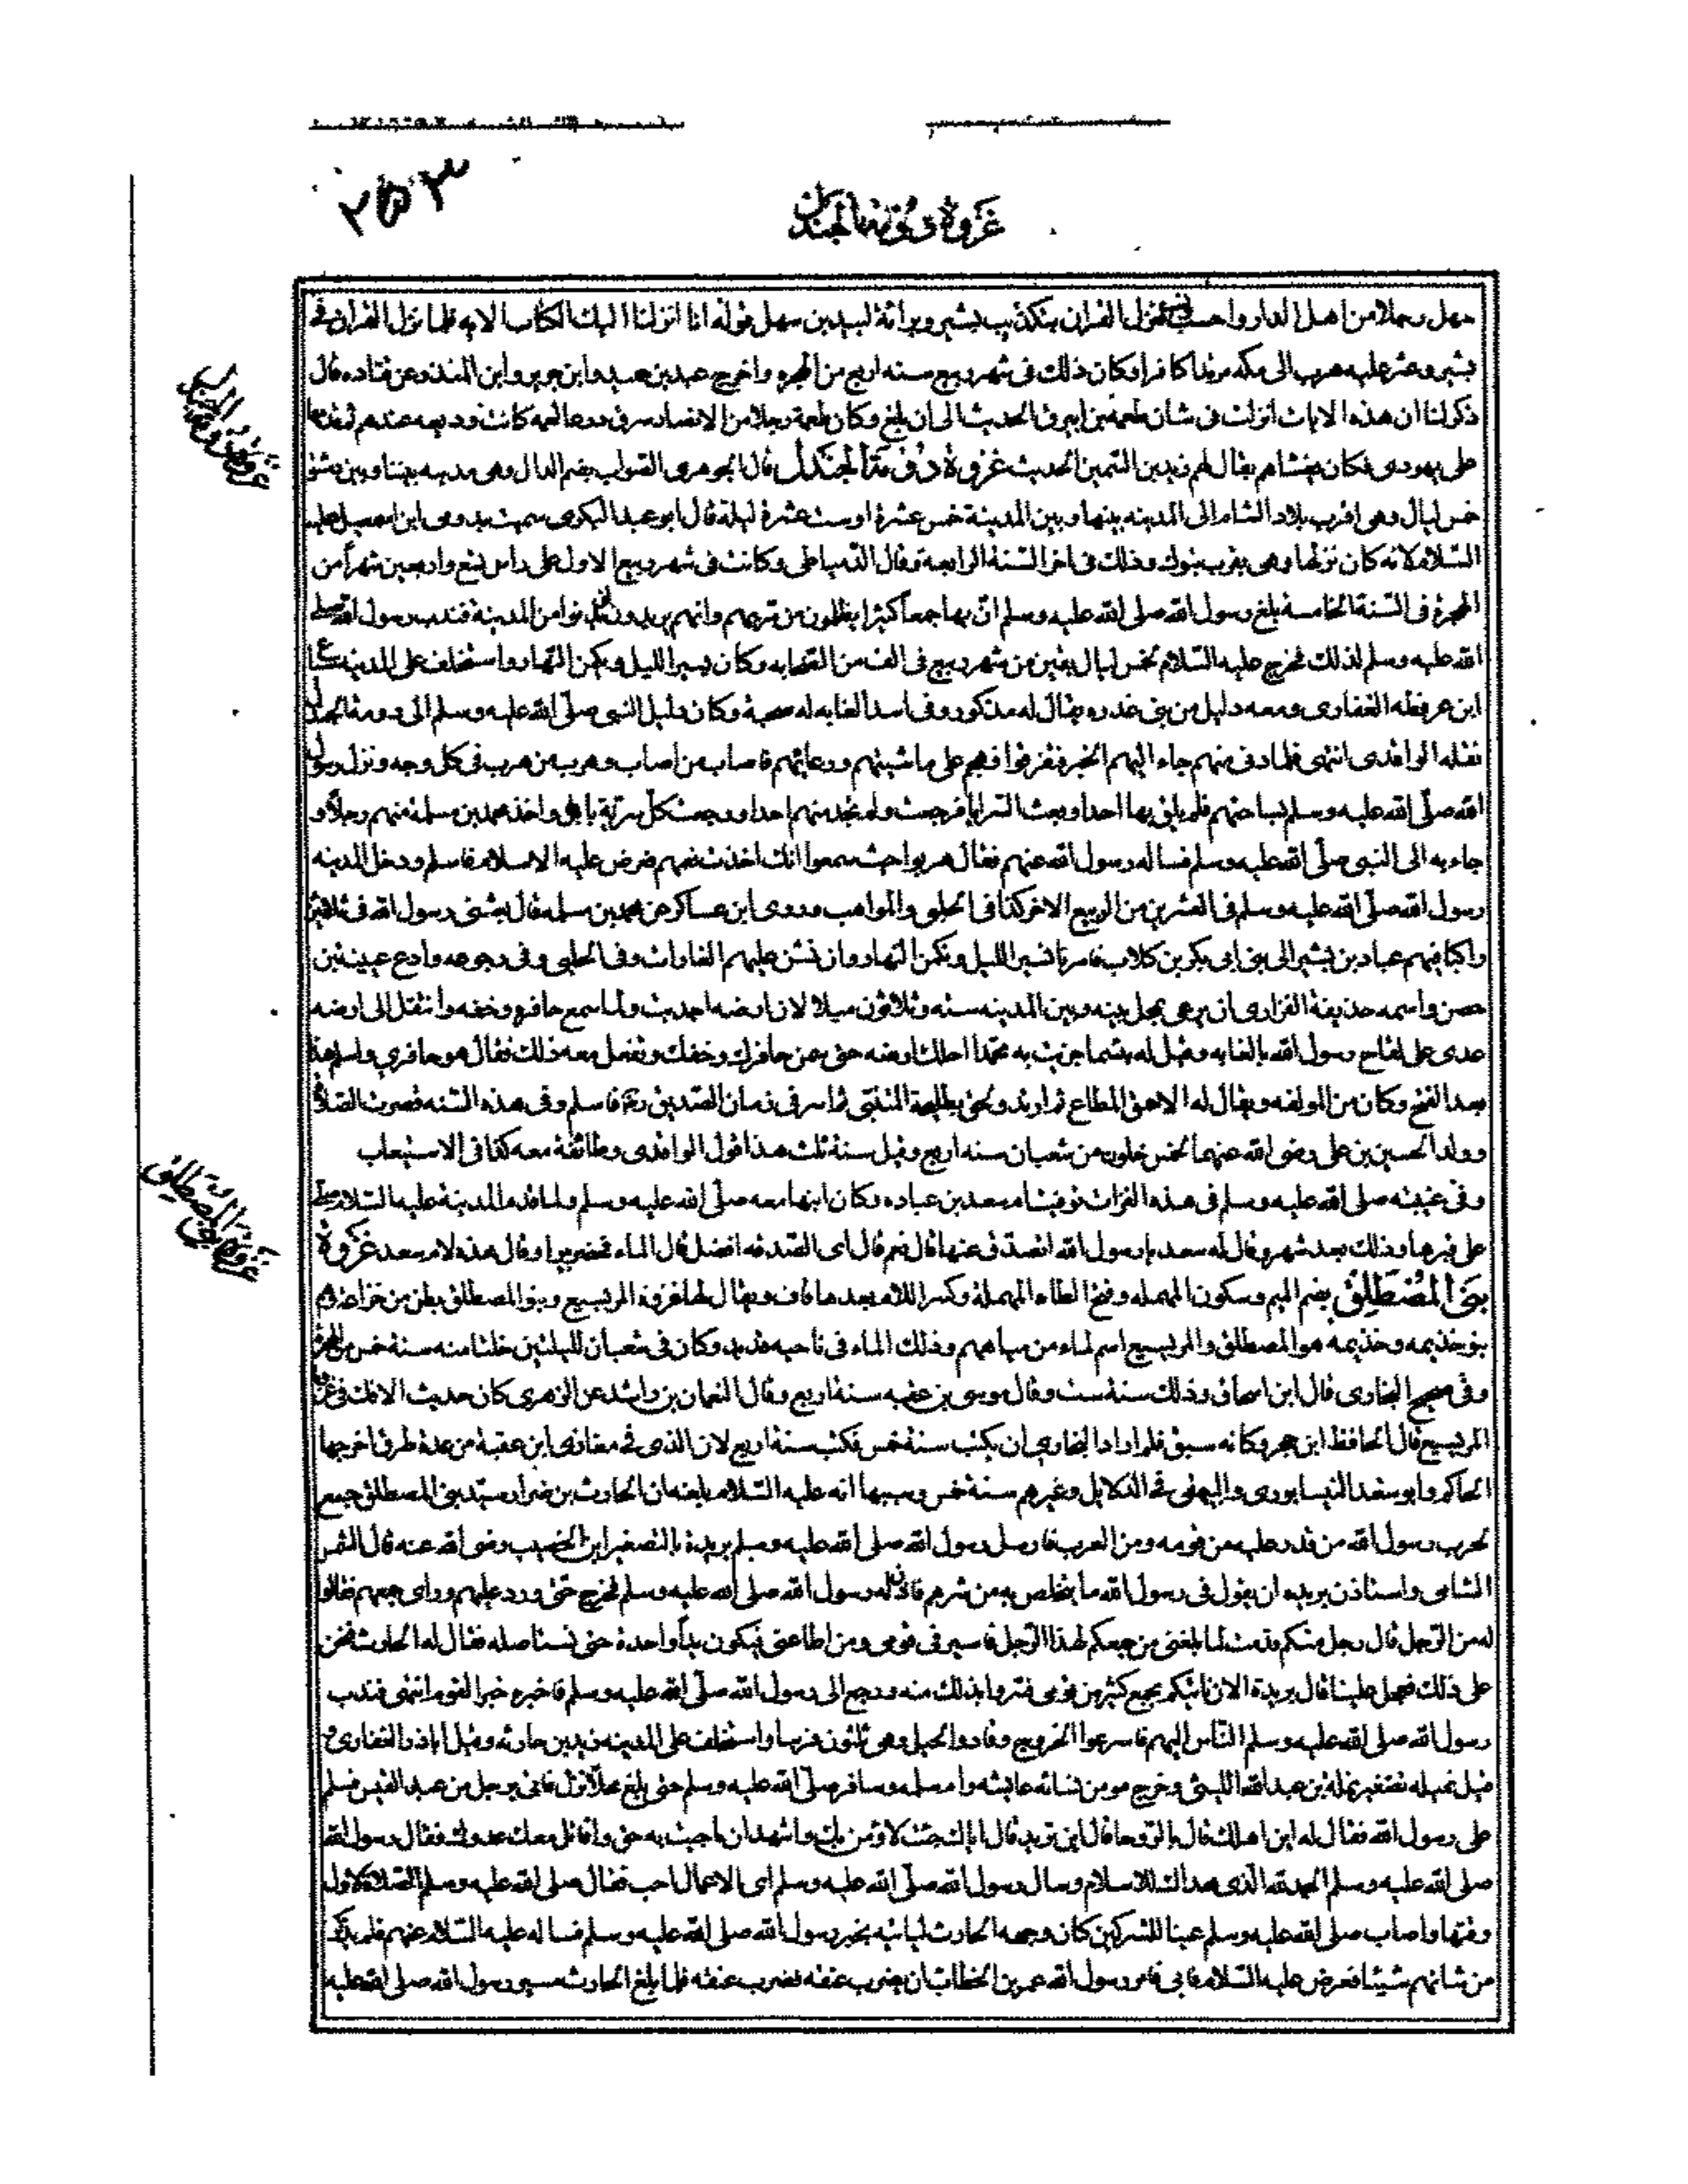 ٢٥٣
غزوة دومة الجندل
سهل رجلا من اهل الدار واحسب فنزل القران بتكذيب بشير وبرائة لبيد بن سهل قوله انا انزلنا اليك الكتاب الايه فلما نزل القران فى
بشير وعثر عليه هرب الى مكه مرتدا كافرا وكان ذلك فى شهر ربيع سنه اربع من الهجره واخرج عبد بن حميد وابن جرير وابن المنذر عن قتاده قال
ذكر لنا ان هذه الايات انزلت فى شان طعمة بن ابيرق الحديث الى ان بلغ وكان طعمة رجلا من الانصار سرق درعا لعمه كانت وديعه عندهم
على يهودى كان يغشاهم يقال لهم زيد بن السمين الحديث غزوة دومة الجندل قال الجوهرى الصواب بضم الدال وهى مدينه بينها وبين دمشق
خمس ليال وهى اقرب بلاد الشام الى المدينه بينها وبين المدينة خمس عشرة او ست عشرة ليلة قال ابو عبد البكرى سميت بدومى ابن اسمعيل عليه
السلام لانه كان نزلها وهى بقرب تبوك وذلك فى اخر السنة الرابعة وقال الدمياطى وكانت فى شهر ربيع الاول على راس تسع واربعين شهراً من
الهجرة فى السنة الخامسة بلغ رسول الله صلى الله عليه وسلم ان بها جمعاً كثيرا يظلمون من مر بهم وانهم يريدون ان يدنوا من المدينة فندب رسول الله صلى
الله عليه وسلم لذلك فخرج عليه السلام لخمس ليال بقين من شهر ربيع فى الف من الصحابه وكان يسير الليل ويكمن النهار واستخلف على المدينه سباع
ابن عرفطه الغفارى ومعه دليل من بنى عذره يقال له مذكور وفى اسد الغابه له صحبة وكان دليل النبى صلى الله عليه وسلم الى دومة الجندل
نقله الواقدى انتهى فلما دنى منهم جاء اليهم الخبر فتفرقوا فهجم على ماشيتهم ورعاتهم فاصاب من اصاب وهرب من هرب فى كل وجه ونزل رسول
الله صلى الله عليه وسلم بساحتهم فلم يلق بها احدا وبعث السرايا فرجعت ولم تجد منهم احدا ورجعت كل سرية بابل واخذ محمد بن مسلمة منهم رجلا و
جاء به الى النبى صلى الله عليه وسلم فساله رسول الله عنهم فقال هربوا حيث سمعوا انك اخذت نعمهم فعرض عليه الاسلام فاسلم ودخل المدينه
رسول الله صلى الله عليه وسلم فى العشرين من الربيع الاخر كذا فى الحلبى والمواهب وروى ابن عساكر عن محمد بن مسلمه قال بعثنى رسول الله فى ثلاثين
راكبا فيهم عباد بن بشير الى بنى ابى بكر بن كلاب فامرنا نسير الليل ونكمن النهار وان نشن عليهم الغارات وفى الحلبى وفى رجوعه وادع عيينه بن
حصن واسمه حذيفة الفزارى ان يرعى بمحل بينه وبين المدينه سته وثلاثون ميلا لان ارضه اجدبت ولما سمع حافره وخفه وانتقل الى ارضه
عدى على لقاح رسول الله بالغابه وقيل له بئسما جزيت به محمدا احلك ارضه حتى سمن حافرك وخفك وتفعل معه ذلك فقال هو حافرى واسلم هذا
بعد الفتح وكان من المولفه ويقال له الاحمق المطاع ثم ارتد ولحق بطليحة المتنبى ثم اسر فى زمان الصديق رضى فاسلم وفى هذه السنه قصرت الصلاة
وولد الحسين بن على رضى الله عنهما لخمس خلون من شعبان سنه اربع وقيل سنة ثلث هذا قول الواقدى وطائفة معه كذا فى الاستيعاب
وفى غيبته صلى الله عليه وسلم فى هذه الغزات توفيت ام سعد بن عباده وكان ابنها معه صلى الله عليه وسلم ولما قدم المدينة عليه السلام صلى
على قبرها وذلك بعد شهر وقال له سعد يا رسول الله اتصدق عنها قال نعم قال اى الصدقه افضل قال الماء فحضر بيرا وقال هذه لام سعد غزوة
بنى المصطلق بضم الميم وسكون المهمله وفتح الطاء المهملة وكسر اللام بعدها قاف ويقال لها غزوة المريسيع وبنو المصطلق بطن من خزاعه وهم
بنو خذيمه وخذيمه هو المصطلق والمريسيع اسم لماء من مياههم وذلك الماء فى ناحيه قديد وكان فى شعبان لليلتين خلتا منه سنة خمس من الهجرة
وفى صحيح البخارى قال ابن اسحاق وذلك سنة ست وقال موسى بن عقبه سنة اربع وقال النعمان بن راشد عن الزهرى كان حديث الافك فى غزوة
المريسيع قال الحافظ ابن حجر وكانه سبق قلم اراد البخارى ان يكتب سنة خمس فكتب سنة اربع لان الذى فى مغازى ابن عقبة من عدة طرق اخرجها
الحاكم وابو سعد النيسابورى والبيهقى فى الدلايل وغيرهم سنة خمس وسببها انه عليه السلام بلغه ان الحارث بن ضرار سيد بنى المصطلق جمع
لحرب رسول الله من قدر عليه من قومه ومن العرب فارسل رسول الله صلى الله عليه وسلم بريدة بالتصغير ابن الخصيب رضى الله عنه قال الشمس
الشامى واستاذن بريده ان يقول فى رسول الله ما يتخلص به من شرهم فاذن له رسول الله صلى الله عليه وسلم فخرج حتى ورد عليهم وراى جمعهم فقالوا
له من الرجل قال رجل منكم قدمت لما بلغنى من جمعكم لهذا الرجل فاسير فى قومى ومن اطاعنى فيكون يداً واحدة حتى نستاصله فقال له الحارث فنحن
على ذلك فعجل علينا قال بريدة الان اتيكم بجمع كثير من قومى فسروا بذلك منه ورجع الى رسول الله صلى الله عليه وسلم فاخبره خبر القوم انتهى فندب
رسول الله صلى الله عليه وسلم الناس اليهم فاسرعوا الخروج وقادوا الخيل وهى ثلثون فرسا واستخلف على المدينه زيد بن حارثه وقيل اباذر الغفارى و
قيل نميله تصغير نملة بن عبد الله الليثى وخرج مو من نسائه عايشه وام سلمه وسافر صلى الله عليه وسلم حتى بلغ محلا نزل فاتى برجل من عبد القيس فسلم
على رسول الله فقال له اين اهلك قال بالروحا قال اين تريد قال اياك جئت لاومن بك واشهد ان ما جيت به حق واقاتل معك عدوك فقال رسول الله
صلى الله عليه وسلم الحمد لله الذى هداك للاسلام وسال رسول الله صلى الله عليه وسلم اى الاعمال احب فقال صلى الله عليه وسلم الصلاة لاول
وقتها واصاب صلى الله عليه وسلم عينا للمشركين كان وجهه الحارث لياتيه بخبر رسول الله صلى الله عليه وسلم فساله عليه السلام عنهم فلم يذكر
من شانهم شيئا فعرض عليه السلام فابى فامر رسول الله عمر بن الخطاب ان يضرب عنقه فضرب عنقه فلما بلغ الحارث مسير رسول الله صلى الله عليه
غزوة دومة الجندل
غزوة بنى المصطلق